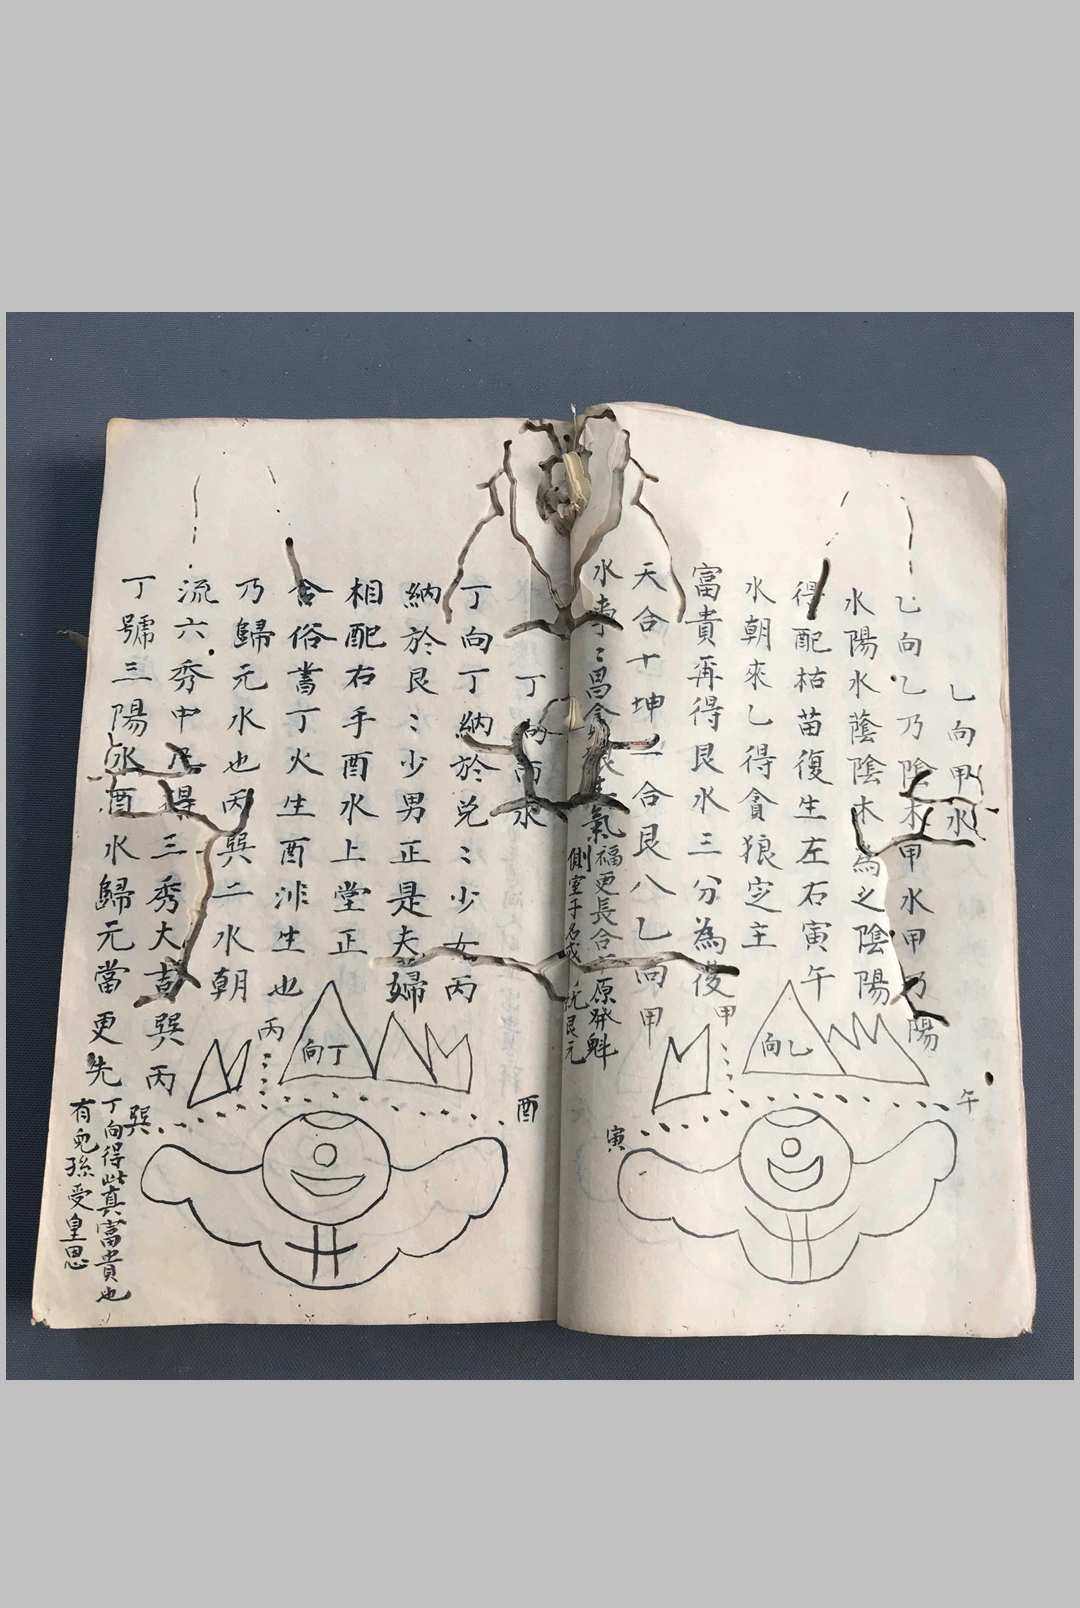 乙向甲水
乙向乙乃陰木甲水甲乃陽
水陽水蔭陰木為之陰陽
得配枯苗復生左右寅午
水朝來乙得貪狼定主
富貴再得艮水三分為後
天合十坤一合艮八乙向甲
水事〻昌氣福更長合原發
側室子名
艮元
甲
向乙
午
寅
丁向丙水
丁向丁納於兌〻少女丙
納於艮〻少男正是夫婦
相配右手酉水上堂正
合俗書丁火生酉非生也
乃歸元水也丙巽二水朝
流六秀中得三秀大吉巽丙
丁號三陽水酉水歸元當更先
丁向得此真富貴也
有兒孫受皇恩
丙
向丁
酉
巽